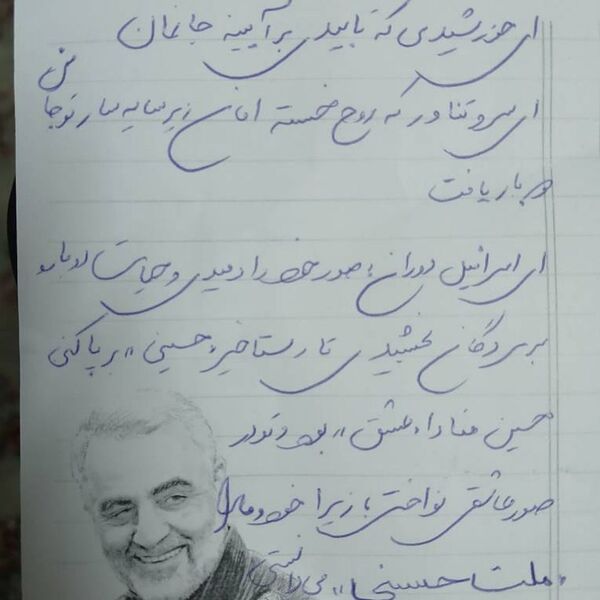 ای خورشیدی که تابیدی بر آیینه جانمان
ای سرو تناور که روح خسته امان زیر سایه سار تو جانی
دوباره یافت
ای اسرافیل دوران؛ صور خود را دمیدی و حیات دوباره
بر مردگان بخشیدی تا رستاخیز «حسینی» بر پا کنی
حسین منادا «عشق» بود و تو در
صور عاشقی نواختی؛ زیرا خود و ما را
«ملت حسینی» می دانستی